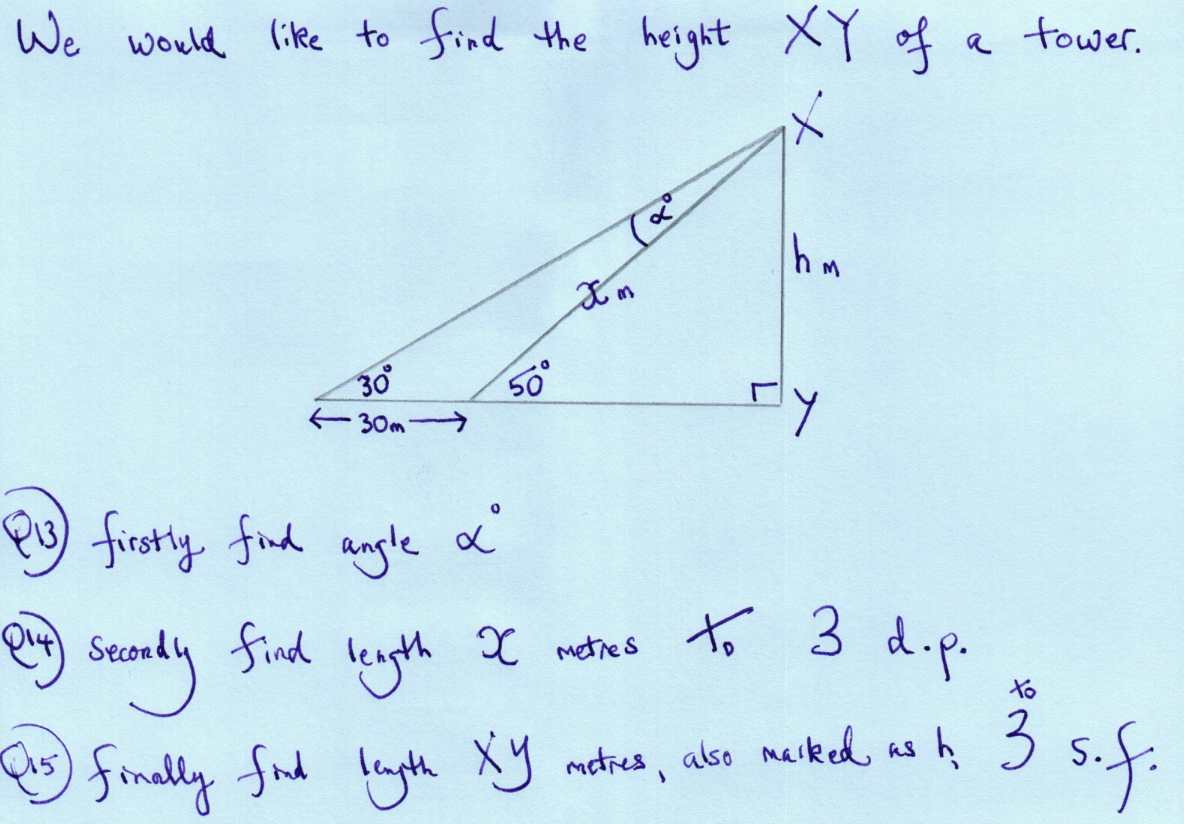 We would like to find the height XY of a tower.
X
α°
h m
x m
30°
50°
Y
30m
Q13) firstly find angle α°
Q14) Secondly find length x metres to 3 d.p.
Q15) finally find length XY metres, also marked as h, to 3 s.f.